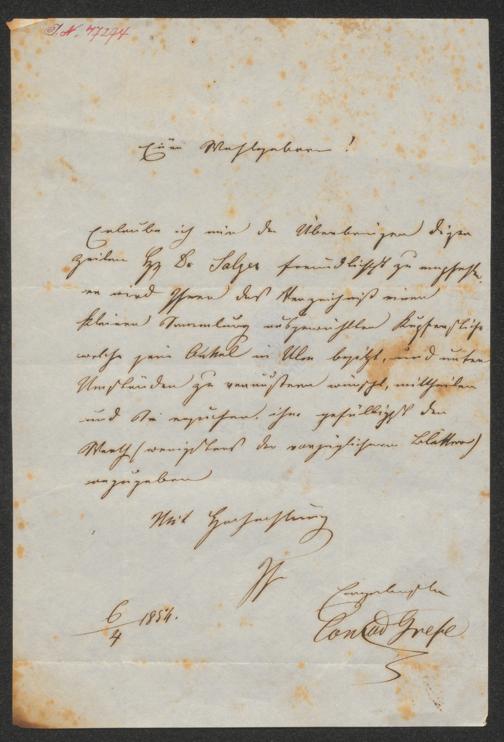 J. N. 77274
Euer Wohlgeboren!
Erlaube ich mir den Überbringer dieser
Zeilen H. Dr. Salzer freundlichst zu empfehlen.
er wird Ihnen das Verzeichniß einer
kleinen Sammlung ausgewählter Kupferstiche
welche sein Onkel in Ulm besitzt, und unter
Umständen zu veräußern wünscht, mittheilen
und Sie ersuchen, ihm gefälligst den
Werth (wenigstens der vorzüglichern Blätter)
anzugeben
Mit Hochachtung
Ihr
Ergebenster
6/4 1854.
Conrad Grefe